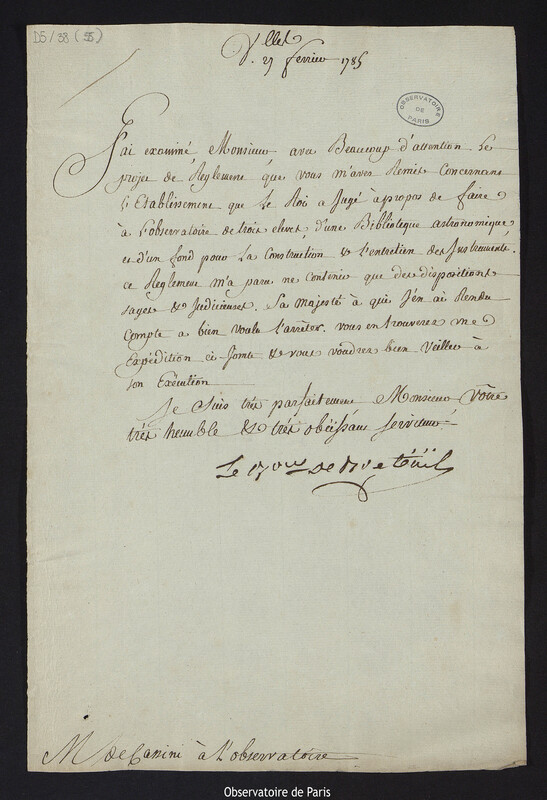 D5/38 (55)
V.lles
27 fevrier 1785
OBSERVATOIRE DE PARIS
J'ai examiné, Monsieur, avec Beaucoup d'attention Le
projet de Reglement que vous m'avez Remis Concernant
L'Etablissement que Le Roi a Jugé àpropos de faire
à l'observatoire de trois eleves, d'une Biblioteque astronomique
et d'un fond pour La Construction & L'entretien des Instruments.
ce Reglement m'a paru ne Contenir que des dispositions
sages & Judicieuses. Sa majesté à qui J'en ai Rendu
Compte a bien voulu l'arrêter. vous en trouverez une
Expédition ci Jointe & vous voudrez bien Veiller à
son Exécution
Je suis très parfaitement Monsieur Vôtre
très humble & très obéissant serviteur.
Le Bon De Breteüil
M. de Cassini à L'observatoire
Observatoire de Paris